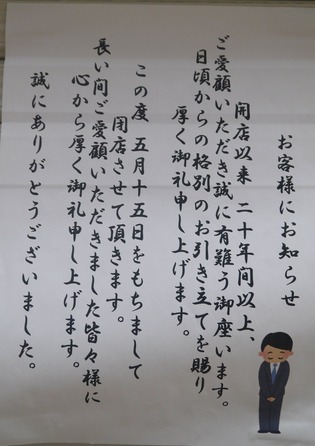 お客様にお知らせ
開店以来 二十年間以上、
ご愛顧いただき誠に有難う御座います。
日頃からの格別のお引き立てを賜り
厚く御礼申し上げます。
この度 五月十五日をもちまして
閉店させて頂きます。
長い間ご愛顧いただきました皆々様に
心から厚く御礼申し上げます。
誠にありがとうございました。